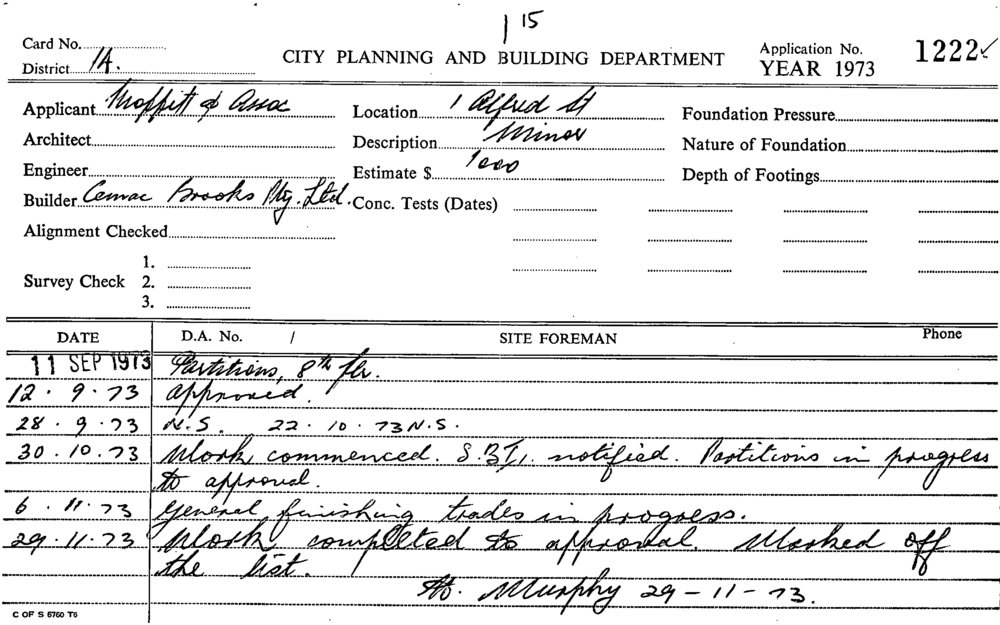 1 15
Card No.
District 1A.
CITY PLANNING AND BUILDING DEPARTMENT
Application No. 1222 ✓
YEAR 1973
Applicant Moffitt & Assoc
Location 1 Alfred St
Foundation Pressure
Architect
Description Minor
Nature of Foundation
Engineer
Estimate $ 1000
Depth of Footings
Builder Cemac Brooks Pty. Ltd.
Conc. Tests (Dates)
Alignment Checked
1.
Survey Check 2.
3.
DATE D.A. No. / SITE FOREMAN Phone
11 SEP 1973 Partitions, 8th flr.
12. 9. 73 approved.
28. 9. 73 N.S. 22. 10. 73 N.S.
30. 10. 73 Work commenced. S.B.I. notified. Partitions in progress
to approval.
6. 11. 73 General finishing trades in progress.
29. 11. 73 Work completed to approval. Marked off
the list.
Murphy 29-11-73.
C OF S 6760 T6